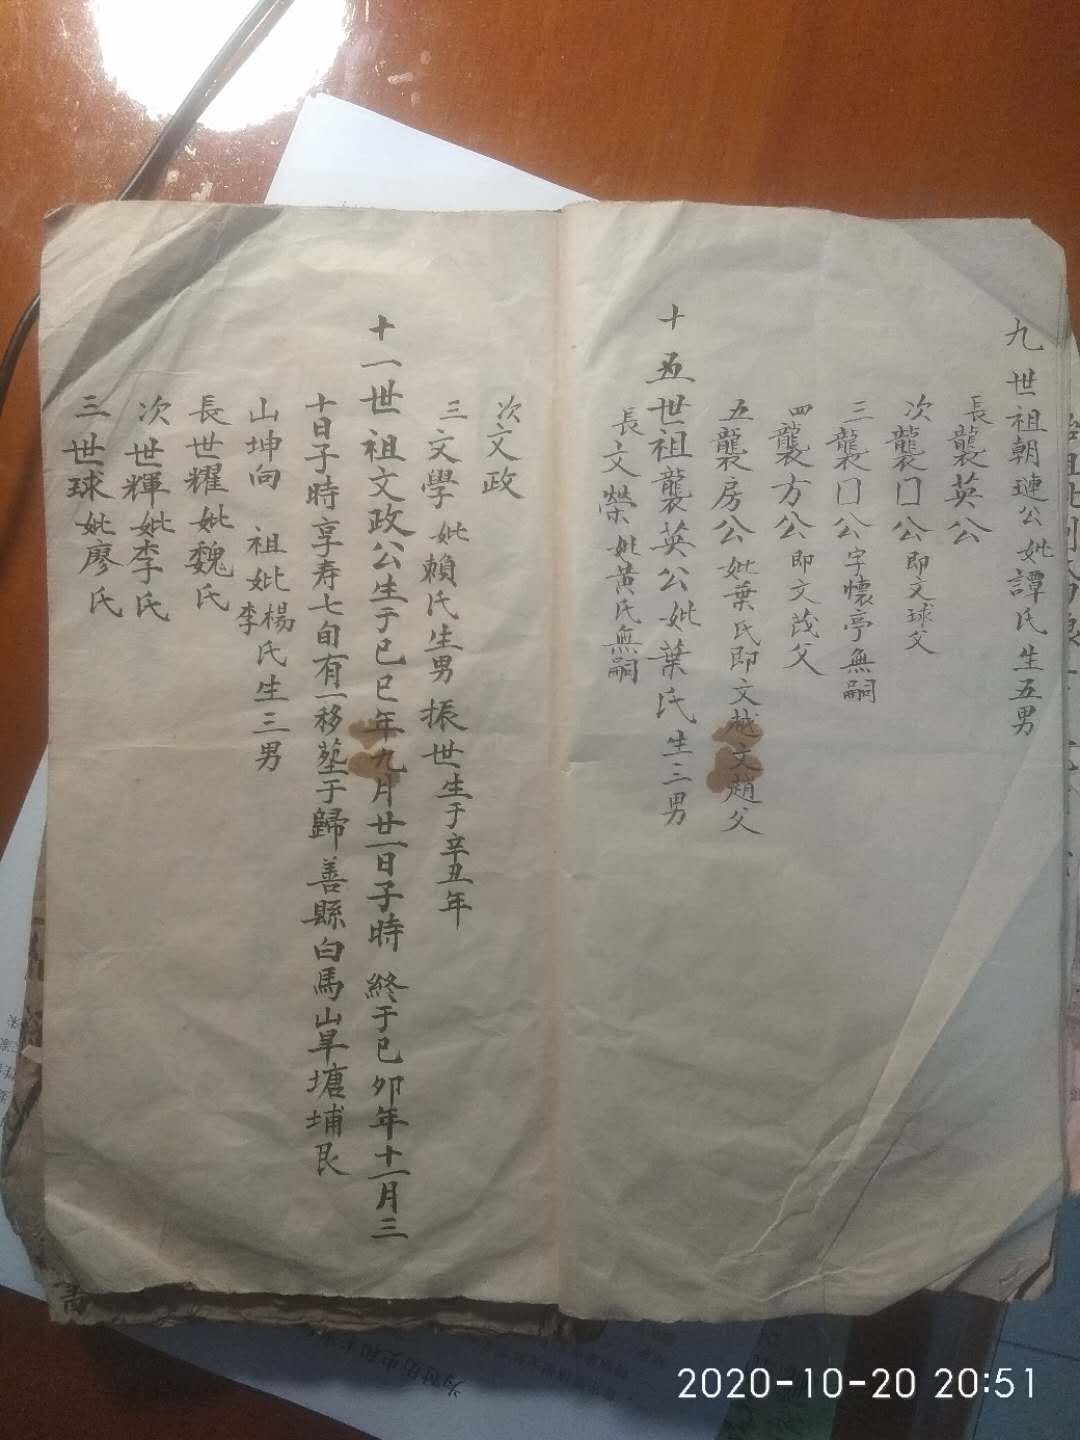 九世祖朝璉公妣譚氏生五男
長龔英公
次龔囗公即文球父
三龔囗公字懷亭無嗣
四龔方公即文茂父
五龔房公妣葉氏即文越文趙父
十五世祖龔英公妣葉氏生三男
長文榮妣黃氏無嗣
次文政
三文學妣賴氏生男振世生于辛丑年
十一世祖文政公生于己巳年九月廿一日子時終于己卯年十一月三
十日子時享寿七旬有一移塟于歸善縣白馬山旱塘埔艮
山坤向祖妣楊李氏生三男
長世耀妣魏氏
次世輝妣李氏
三世球妣廖氏
2020-10-20 20:51